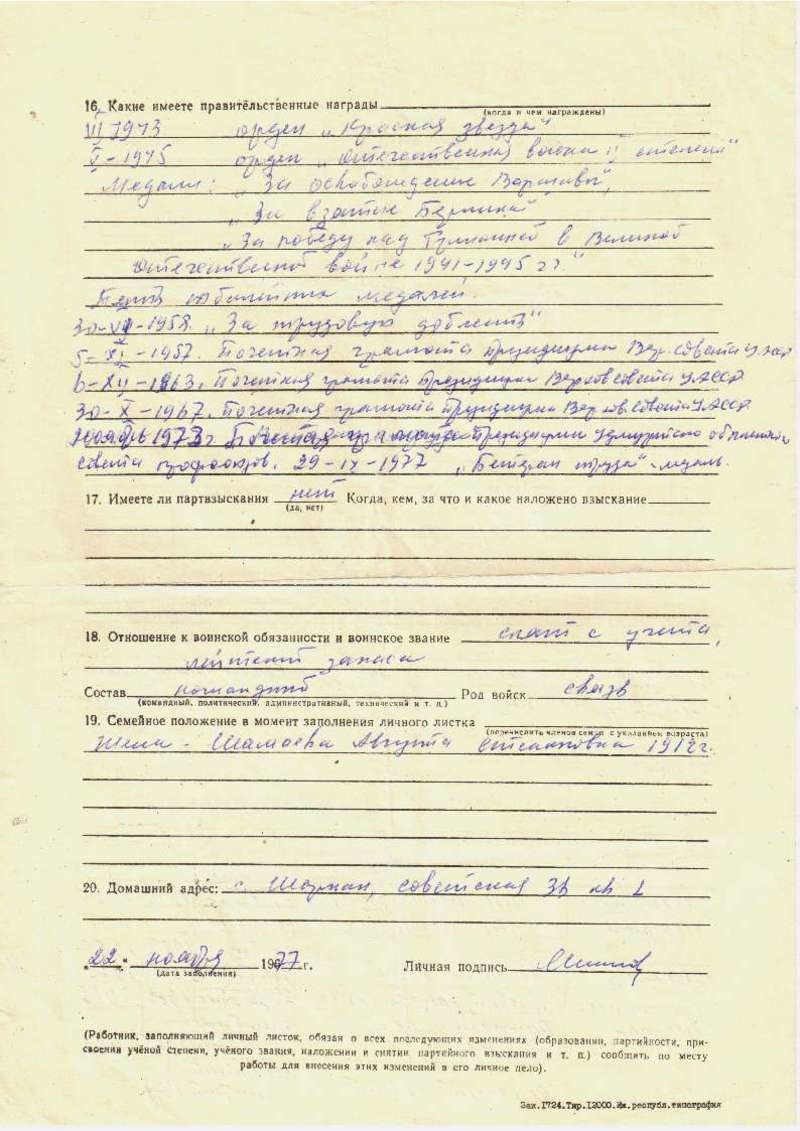 16. Какие имеете правительственные награды
(когда и чем награждены)
VII 1943 орден „Красная звезда“
V-1945 орден „Отечественная война II степени“
Медали: „За освобождение Варшавы“,
„За взятие Берлина“
„За победу над Германией в Великой
Отечественной войне 1941-1945 гг.“
Пять юбилейных медалей.
30-VI-1958. „За трудовую доблесть“
5-XI-1957. Почетная грамота Президиума Вер. Совета У.АССР
6-XII-1963. Почетная грамота Президиума Верхов Совета У.АССР
30-X-1967. Почетная грамота Президиума Верхов. Совета У.АССР
ноябрь 1973г Почетная грамота Президиума Удмуртского областного
совета профсоюзов. 29-IX-1977 „Ветеран труда“-медаль.
17. Имеете ли партвзыскания нет Когда, кем, за что и какое наложено взыскание
(да, нет)
18. Отношение к воинской обязанности и воинское звание снят с учета,
лейтенант запаса
Состав командный Род войск связь
(командный, политический, административный, технический и т. п.)
19. Семейное положение в момент заполнения личного листка
(перечислить членов семьи с указанием возраста)
Жена - Августа Степановна 1912г.
20. Домашний адрес: с. Шаркан, Советская
„22“ ноября 1977 г. Личная подпись
(дата заполнения)
(Работник, заполняющий личный листок, обязан о всех последующих изменениях (образовании, партийности, при-
своении учёной степени, учёного звания, наложении и снятии партийного взыскания и т. п.) сообщить по месту
работы для внесения этих изменений в его личное дело).
Зак.1724.Тир.12000.Иж.республ.типография